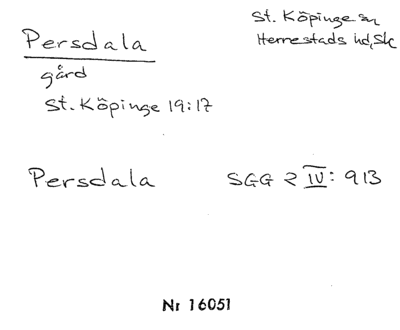 Persdala
St. Köpinge sn
Herrestads hd, Sk
gård
St. Köpinge 19:17
Persdala SGG 2 IV: 913
Nr 16051